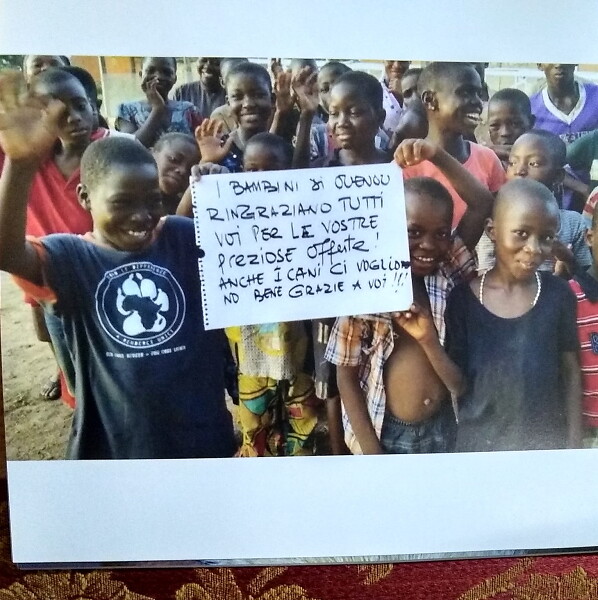 I BAMBINI DI OUENOU
RINGRAZIANO TUTTI
VOI PER LE VOSTRE
PREZIOSE OFFERTE!
ANCHE I CANI CI VOGLIO
NO BENE GRAZIE A VOI !!!